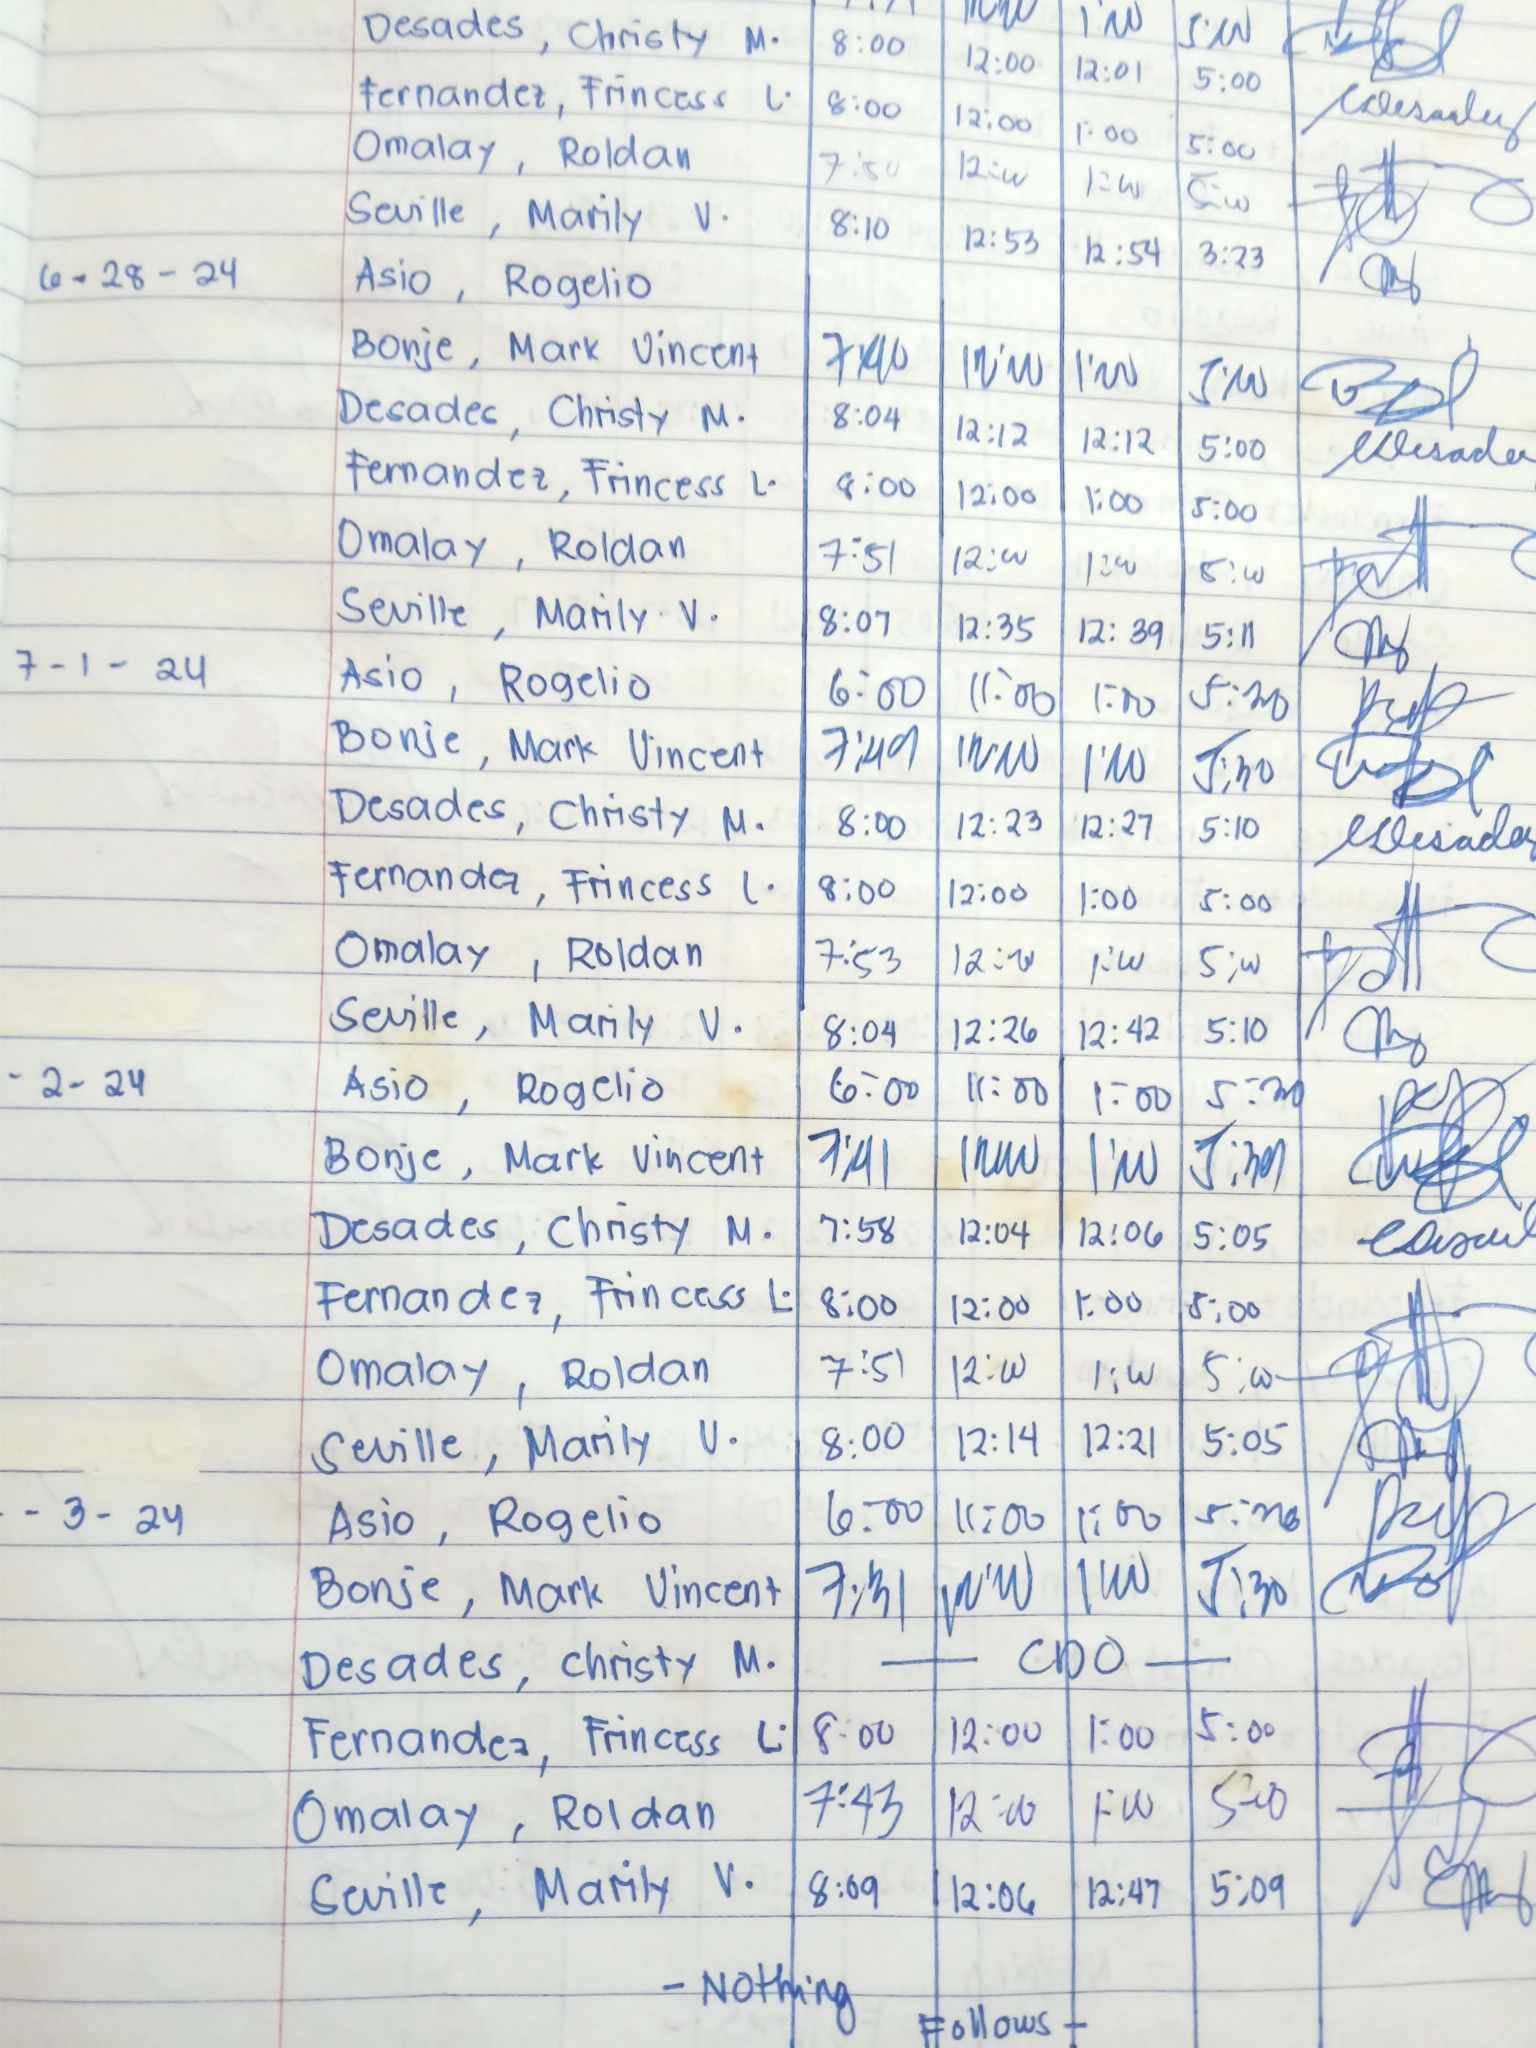 Desades, Christy M. 8:00 12:00 12:01 5:00
Fernandez, Frincess L. 8:00 12:00 1:00 5:00
Omalay, Roldan 7:50 12:00 1:00 5:00
Seville, Marily V. 8:10 12:53 12:54 3:23
6-28-24 Asio, Rogelio
Bonje, Mark Vincent 7:40 12:00 1:00 5:00
Desades, Christy M. 8:04 12:12 12:12 5:00
Fernandez, Frincess L. 8:00 12:00 1:00 5:00
Omalay, Roldan 7:51 12:00 1:00 5:00
Seville, Marily V. 8:07 12:35 12:39 5:11
7-1-24 Asio, Rogelio 6:00 11:00 1:00 5:30
Bonje, Mark Vincent 7:49 12:00 1:00 5:30
Desades, Christy M. 8:00 12:23 12:27 5:10
Fernandez, Frincess L. 8:00 12:00 1:00 5:00
Omalay, Roldan 7:53 12:00 1:00 5:00
Seville, Marily V. 8:04 12:26 12:42 5:10
-2-24 Asio, Rogelio 6:00 11:00 1:00 5:30
Bonje, Mark Vincent 7:41 12:00 1:00 5:30
Desades, Christy M. 7:58 12:04 12:06 5:05
Fernandez, Frincess L. 8:00 12:00 1:00 5:00
Omalay, Roldan 7:51 12:00 1:00 5:00
Seville, Marily V. 8:00 12:14 12:21 5:05
-3-24 Asio, Rogelio 6:00 11:00 1:00 5:30
Bonje, Mark Vincent 7:31 12:00 1:00 5:30
Desades, Christy M. — CDO —
Fernandez, Frincess L. 8:00 12:00 1:00 5:00
Omalay, Roldan 7:43 12:00 1:00 5:00
Seville, Marily V. 8:09 12:06 12:47 5:09
- Nothing
Follows -